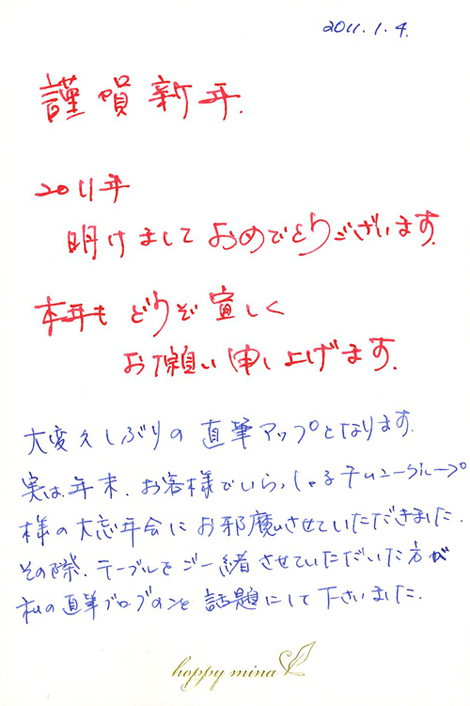 2011.1.4.
謹賀新年.
2011年
明けましておめでとうございます.
本年も どうぞ宜しく
お願い申し上げます.
大変久しぶりの直筆アップとなります.
実は年末、お客様でいらっしゃる チムニーグループ
様の大忘年会にお邪魔させていただきました.
その際、テーブルをご一緒させていただいた方が
私の直筆ブログのことを話題にして下さいました.
happy mina